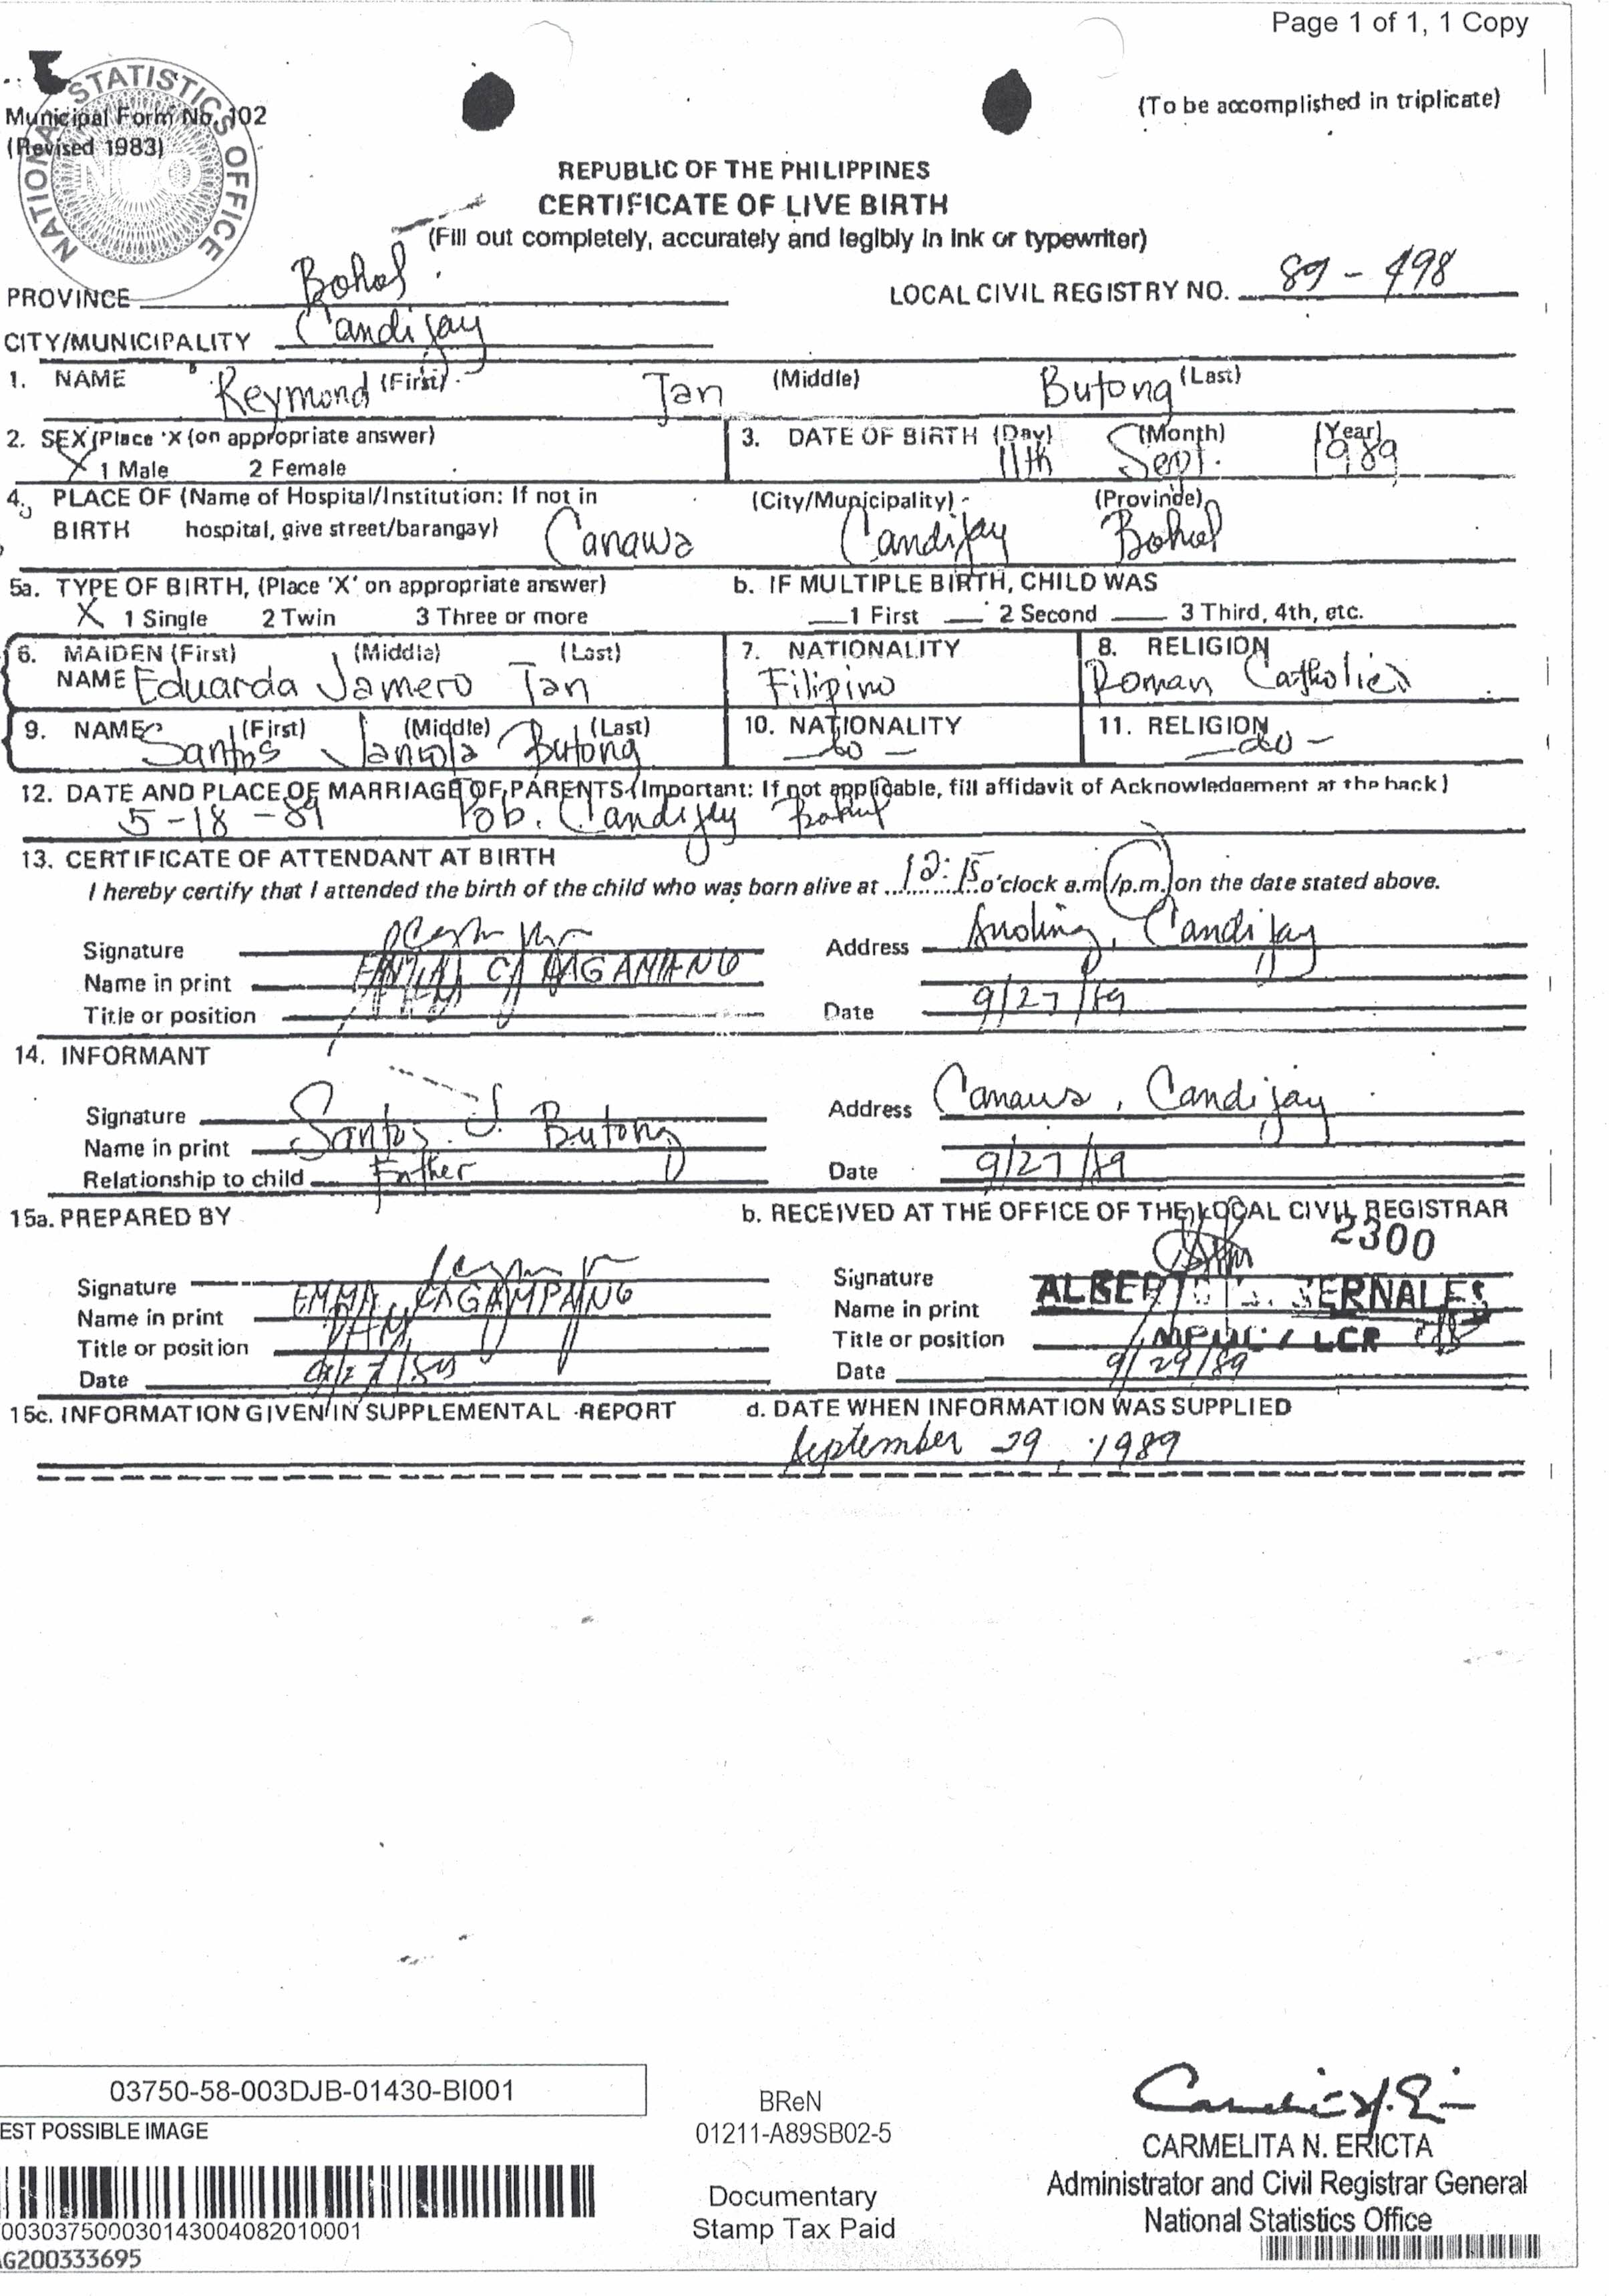 Page 1 of 1, 1 Copy
NATIONAL STATISTICS OFFICE
NSO
Municipal Form No. 102
(To be accomplished in triplicate)
(Revised 1983)
REPUBLIC OF THE PHILIPPINES
CERTIFICATE OF LIVE BIRTH
(Fill out completely, accurately and legibly in ink or typewriter)
PROVINCE Bohol LOCAL CIVIL REGISTRY NO. 89 - 498
CITY/MUNICIPALITY Candijay
1. NAME Reymond (First) Tan (Middle) Butong (Last)
2. SEX (Place 'X (on appropriate answer) 3. DATE OF BIRTH (Day) (Month) (Year)
X 1 Male 2 Female 11th Sept. 1989
4. PLACE OF (Name of Hospital/Institution: If not in (City/Municipality) (Province)
BIRTH hospital, give street/barangay) Canawa Candijay Bohol
5a. TYPE OF BIRTH, (Place 'X' on appropriate answer) b. IF MULTIPLE BIRTH, CHILD WAS
X 1 Single 2 Twin 3 Three or more 1 First 2 Second 3 Third, 4th, etc.
6. MAIDEN (First) (Middle) (Last) 7. NATIONALITY 8. RELIGION
NAME Eduarda Jamero Tan Filipino Roman Catholic
9. NAME (First) (Middle) (Last) 10. NATIONALITY 11. RELIGION
Santos Butong -do-
12. DATE AND PLACE OF MARRIAGE OF PARENTS (Important: If not applicable, fill affidavit of Acknowledgement at the back)
5-18-89 Pob. Candijay Bohol
13. CERTIFICATE OF ATTENDANT AT BIRTH
I hereby certify that I attended the birth of the child who was born alive at 12:15 o'clock a.m/p.m. on the date stated above.
Signature Address Anoling, Candijay
Name in print
Title or position Date 9/27/89
14. INFORMANT
Signature Address Canawa, Candijay
Name in print Santos J. Butong
Relationship to child Father Date 9/27/89
15a. PREPARED BY b. RECEIVED AT THE OFFICE OF THE LOCAL CIVIL REGISTRAR
2300
Signature Signature
Name in print EMMA CAGAMPANG Name in print
Title or position Title or position / LCR
Date 9/27/89 Date 9/29/89
15c. INFORMATION GIVEN IN SUPPLEMENTAL REPORT d. DATE WHEN INFORMATION WAS SUPPLIED
September 29, 1989
03750-58-003DJB-01430-BI001
EST POSSIBLE IMAGE
00303750003014300408201​0001
G200333695
BReN
01211-A89SB02-5
Documentary
Stamp Tax Paid
CARMELITA N. ERICTA
Administrator and Civil Registrar General
National Statistics Office